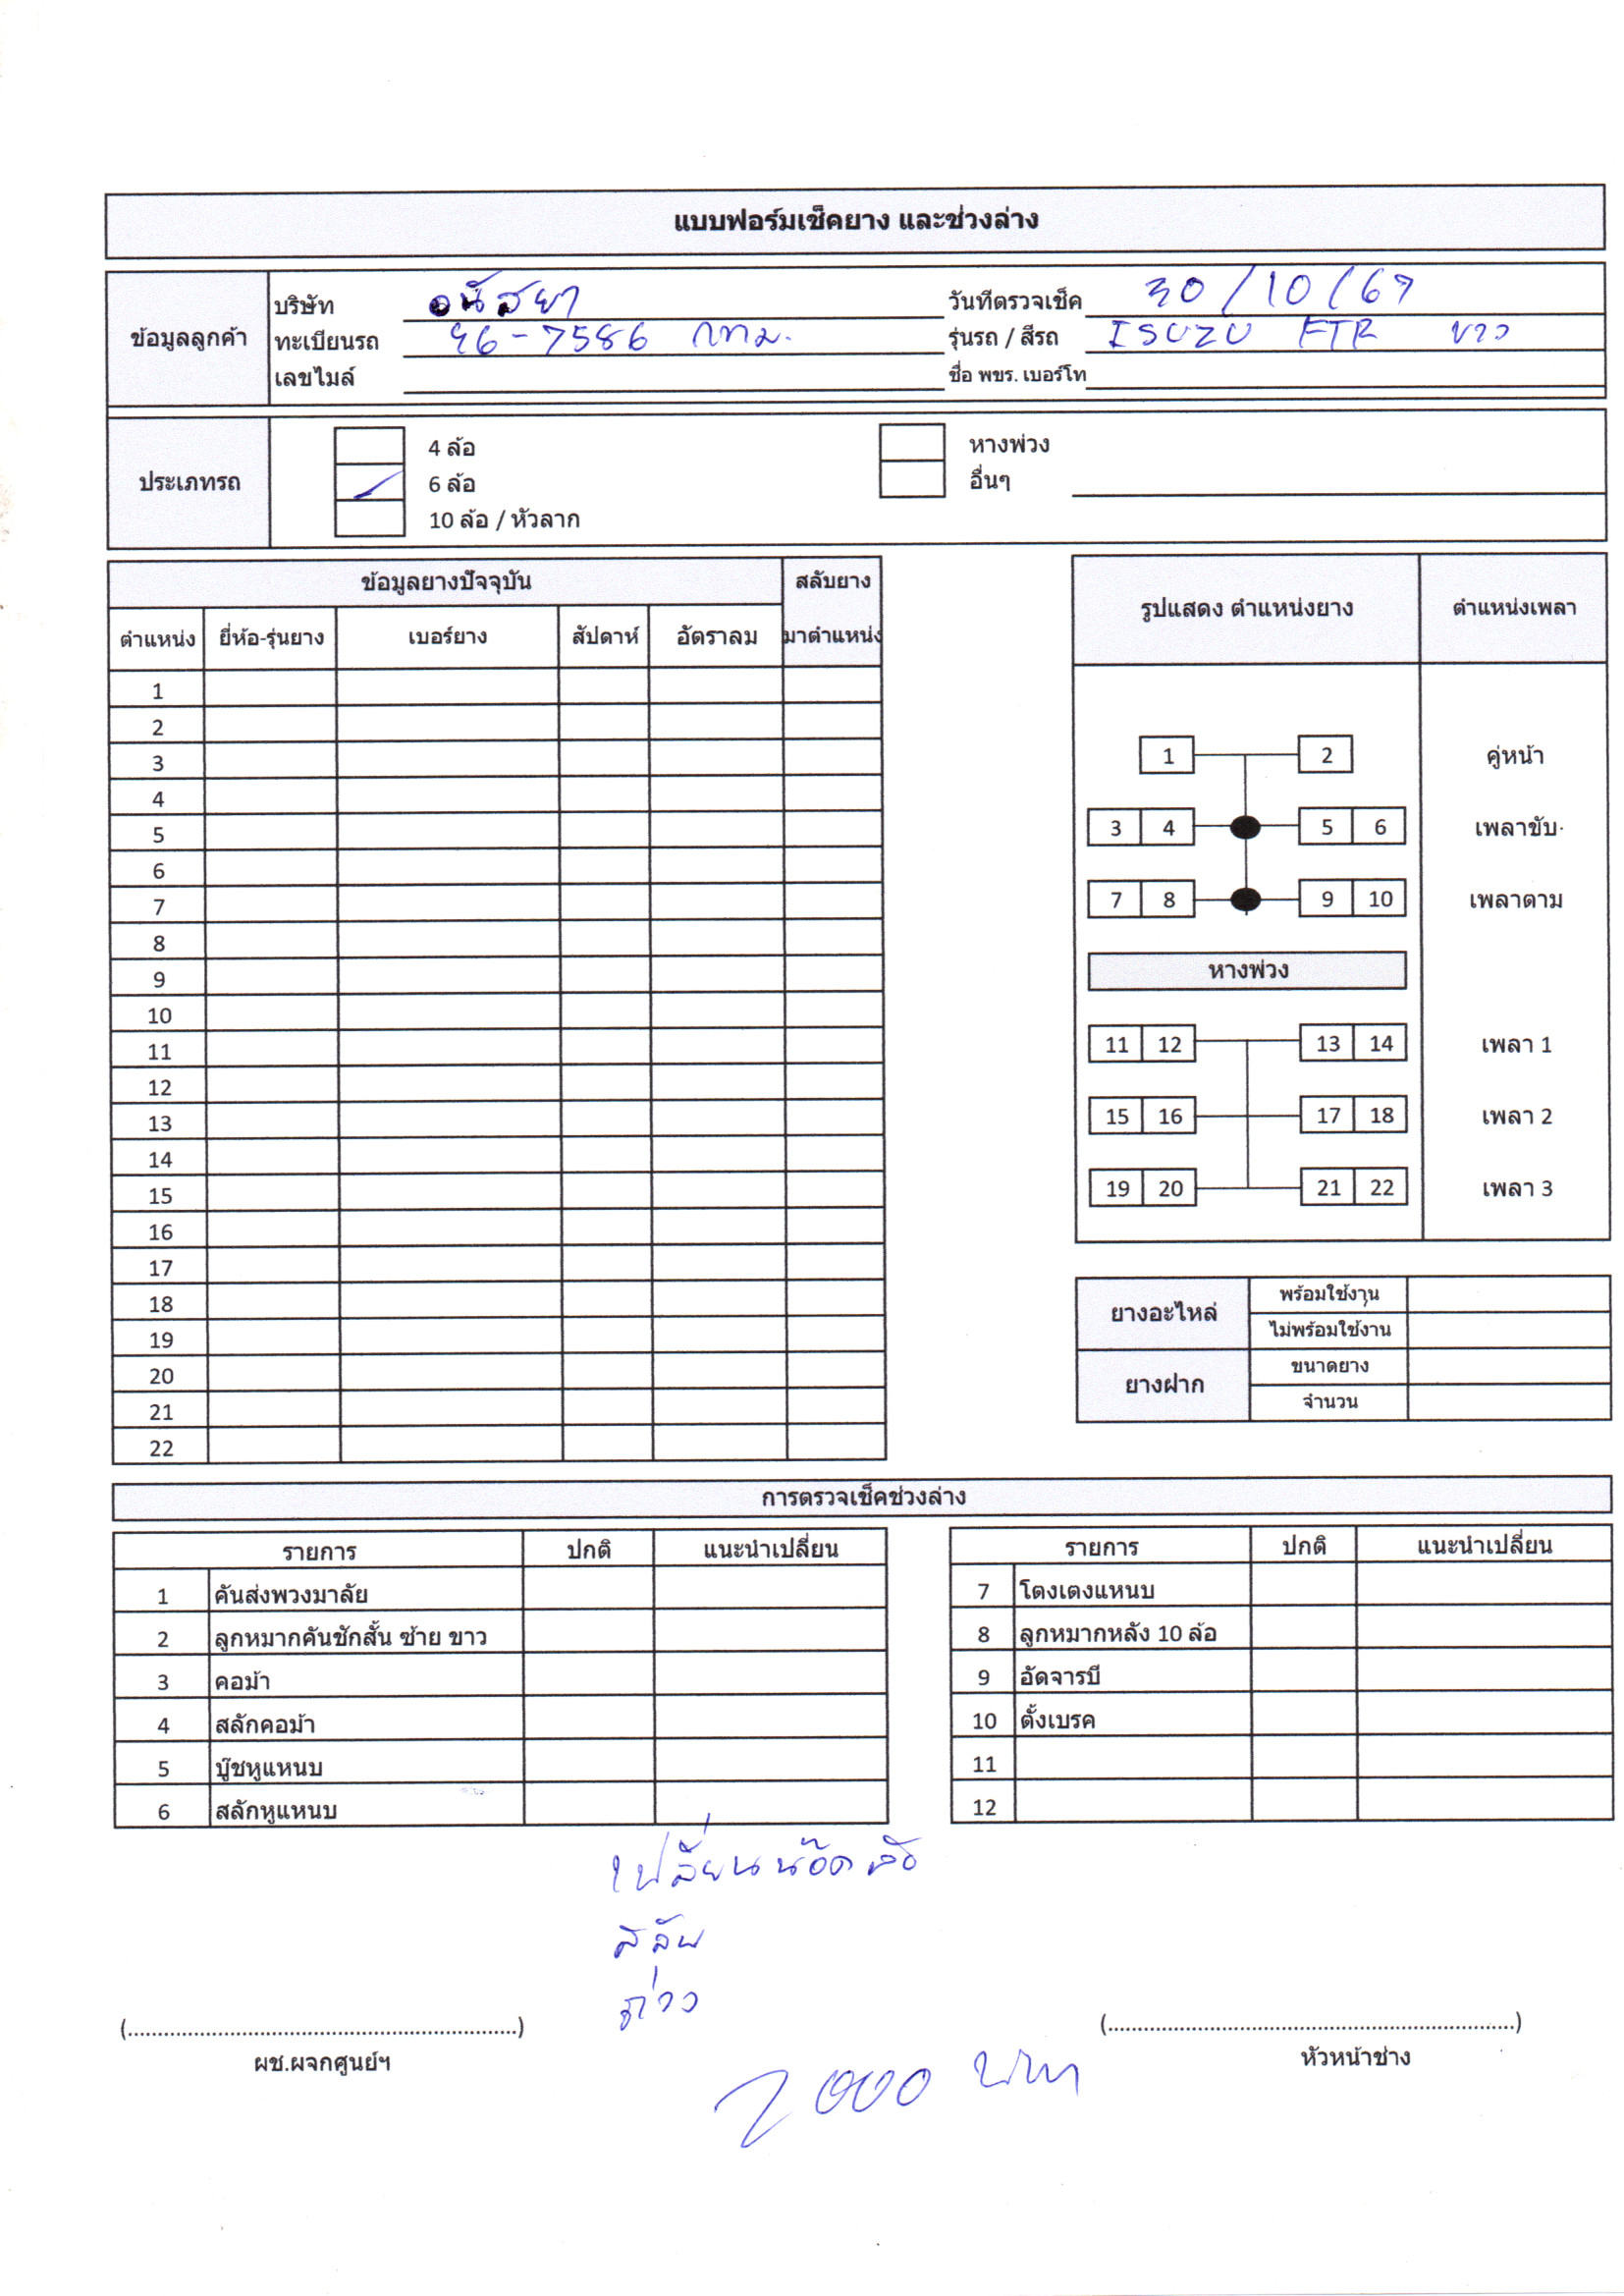 แบบฟอร์มเช็คยาง และช่วงล่าง
ข้อมูลลูกค้า
บริษัท อนัสยา วันที่ตรวจเช็ค 30/10/67
ทะเบียนรถ 96-7586 กทม. รุ่นรถ / สีรถ ISUZU FTR ขาว
เลขไมล์ ชื่อ พขร. เบอร์โท
ประเภทรถ
4 ล้อ หางพ่วง
6 ล้อ อื่นๆ
10 ล้อ / หัวลาก
ข้อมูลยางปัจจุบัน สลับยาง
ตำแหน่ง ยี่ห้อ-รุ่นยาง เบอร์ยาง สัปดาห์ อัตราลม มาตำแหน่ง
1
2
3
4
5
6
7
8
9
10
11
12
13
14
15
16
17
18
19
20
21
22
รูปแสดง ตำแหน่งยาง ตำแหน่งเพลา
1 2 คู่หน้า
3 4 5 6 เพลาขับ
7 8 9 10 เพลาตาม
หางพ่วง
11 12 13 14 เพลา 1
15 16 17 18 เพลา 2
19 20 21 22 เพลา 3
ยางอะไหล่ พร้อมใช้งาน
ไม่พร้อมใช้งาน
ยางฝาก ขนาดยาง
จำนวน
การตรวจเช็คช่วงล่าง
รายการ ปกติ แนะนำเปลี่ยน
1 คันส่งพวงมาลัย
2 ลูกหมากคันชักสั้น ซ้าย ขาว
3 คอม้า
4 สลักคอม้า
5 บู๊ชหูแหนบ
6 สลักหูแหนบ
รายการ ปกติ แนะนำเปลี่ยน
7 โตงเตงแหนบ
8 ลูกหมากหลัง 10 ล้อ
9 อัดจารบี
10 ตั้งเบรค
11
12
เปลี่ยนน๊อตล้อ
สลับ
ถ่วง
(...................................................................) (......................................................................)
ผช.ผจกศูนย์ฯ หัวหน้าช่าง
000 บาท